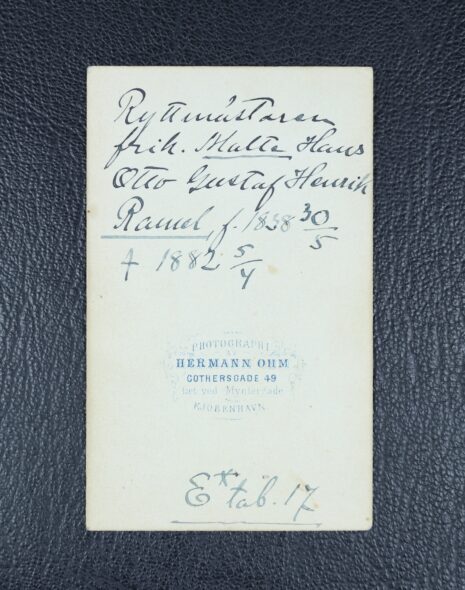 Ryttmästaren
frih. Malte Hans
Otto Gustaf Henrik
Ramel, f. 1838 30/5
† 1882 5/4
PHOTOGRAPHI
AF
HERMANN OHM
GOTHERSGADE 49
tæt ved Myntergade
KJØBENHAVN
Ex tab. 17